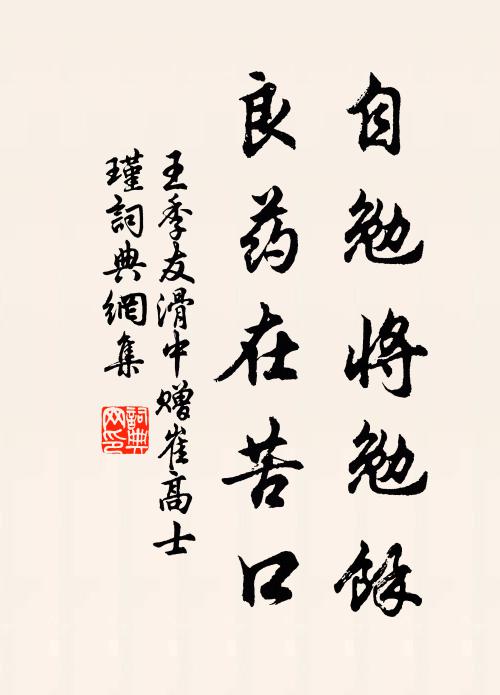 自勉將勉餘
良药在苦口
王季友滑中赠崔高士
瑾詞典網集
詞典網印